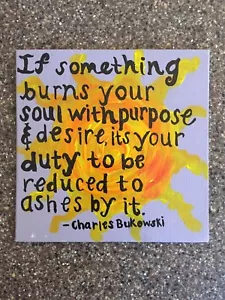 If something
burns your
soul with purpose
& desire, its your
duty to be
reduced to
ashes by it.
-Charles Bukowski